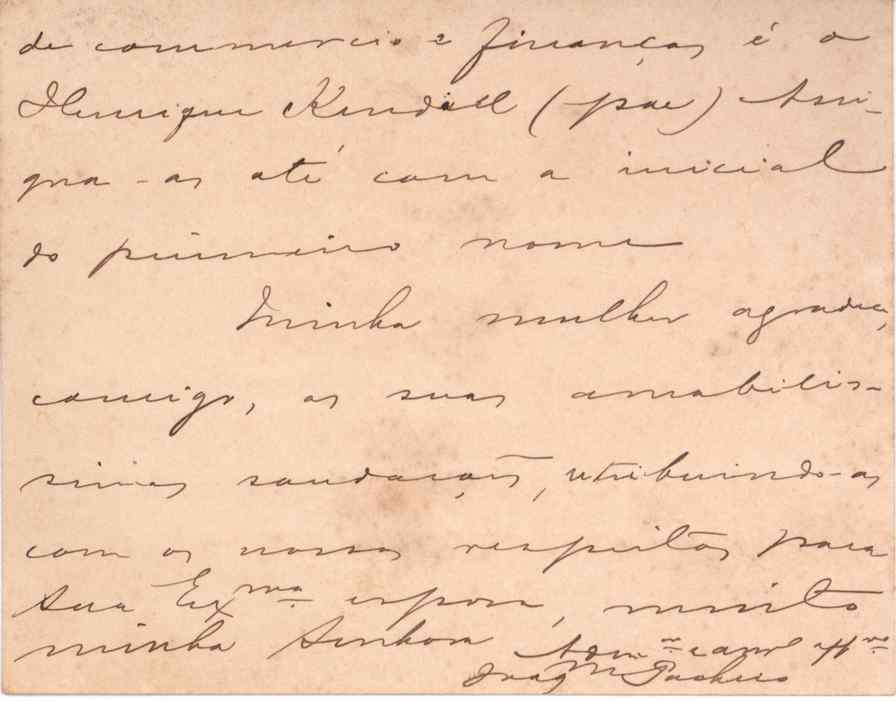 de commercio e finanças é o
Henrique Kendall (pae) Assi-
gna-as até com a inicial
do primeiro nome
Minha mulher agradece,
comigo, as suas amabilis-
simas saudações, retribuindo-as
com os nossos respeitos para
sua Exma esposa, muito
minha Senhora
Pacheco